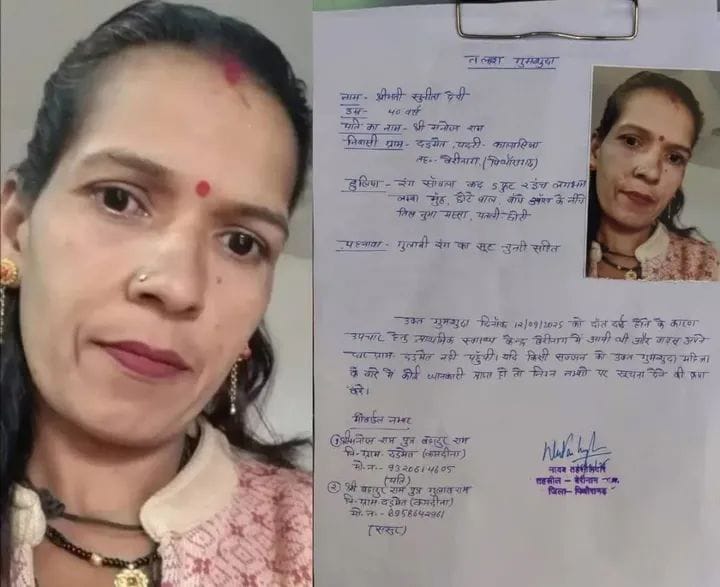 तलाश गुमशुदा
नाम - श्रीमती सुनीता देवी
उम्र - ४० वर्ष
पति का नाम - श्री मनोज राम
निवासी ग्राम - दडमेत, पट्टी -
तह०- बेरीनाग, (पिथौरागढ़)
हुलिया - रंग साँवला कद ५ फुट २ इंच लगभग
लम्बा मुँह, छोटे बाल, बाँये आँख के नीचे
तिल नुमा मस्सा, पतली-छोटी
पहनावा - गुलाबी रंग का सूट चुन्नी सहित
उक्त गुमशुदा दिनाँक 12/09/2025 को दाँत दर्द होने के कारण
उपचार हेतु प्राथमिक स्वास्थ्य केन्द्र बेरीनाग में आयी थी और वापस अपने
घर ग्राम दडमेत नहीं पहुँची। यदि किसी सज्जन को उक्त गुमशुदा महिला
के बारे में कोई जानकारी प्राप्त हो तो निम्न नम्बरों पर सूचना देने की कृपा
करें।
मोबाईल नम्बर
① श्री मनोज राम पुत्र बहादुर राम
नि०-ग्राम-दडमेत (कमदीना)
मो.न०- 9320614605
(पति)
२) श्री बहादुर राम पुत्र गुलाब राम
नि-ग्राम दडमेत (कमदीना)
मो.न०- 8958642961
(ससुर)
नायब तहसीलदार
तहसील - बेरीनाग
जिला- पिथौरागढ़